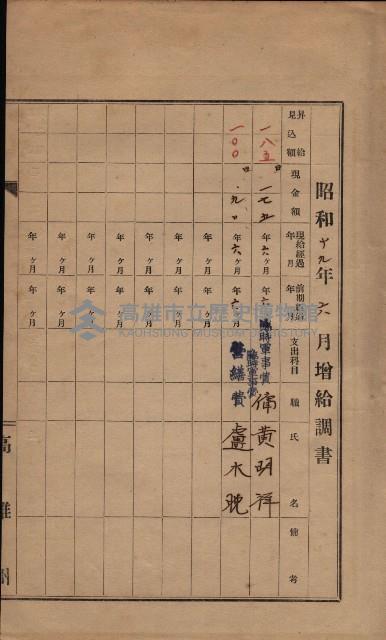 昭和十九年六月増給調書
昇給見込額
現金額
現給経過年月
年月
支出科目
職氏名
備考
一八五
一七五
年六ヶ月
年六
臨時軍事費
傭
黄明祥
一〇〇
九〇
年六ヶ月
年六
臨時軍事費
営繕費
盧水
年ヶ月
年ヶ月
年ヶ月
年ヶ月
年ヶ月
年ヶ月
年ヶ月
年ヶ月
年ヶ月
年ヶ月
年ヶ月
年ヶ月
年ヶ月
年ヶ月
高雄州
高雄市立歷史博物館
KAOHSIUNG MUSEUM OF HISTORY